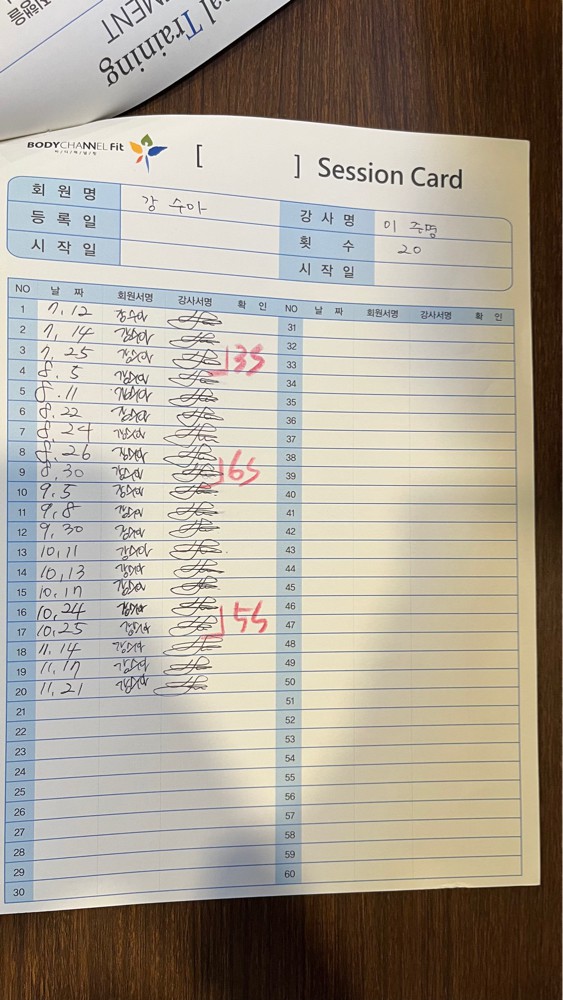 지행을
al Training
MENT
BODYCHANNEL Fit
바 디 채 널 핏
[ ] Session Card
회 원 명 강 수아
등 록 일
시 작 일
강 사 명 이 주명
횟 수 20
시 작 일
NO 날 짜 회원서명 강사서명 확 인
1 7. 12 강수아
2 7. 14 강수아
3 7. 25 강수아 3S
4 8. 5 강수아
5 8. 11 강수아
6 8. 22 강수아
7 8. 24 강수아
8 8. 26 강수아
9 8. 30 강수아 6S
10 9. 5 강수아
11 9. 8 강수아
12 9. 30 강수아
13 10. 11 강수아
14 10. 13 강수아
15 10. 17 강수아
16 10. 24 강수아
17 10. 25 강수아 5S
18 11. 14 강수아
19 11. 17 강수아
20 11. 21 강수아
21
22
23
24
25
26
27
28
29
30
NO 날 짜 회원서명 강사서명 확 인
31
32
33
34
35
36
37
38
39
40
41
42
43
44
45
46
47
48
49
50
51
52
53
54
55
56
57
58
59
60